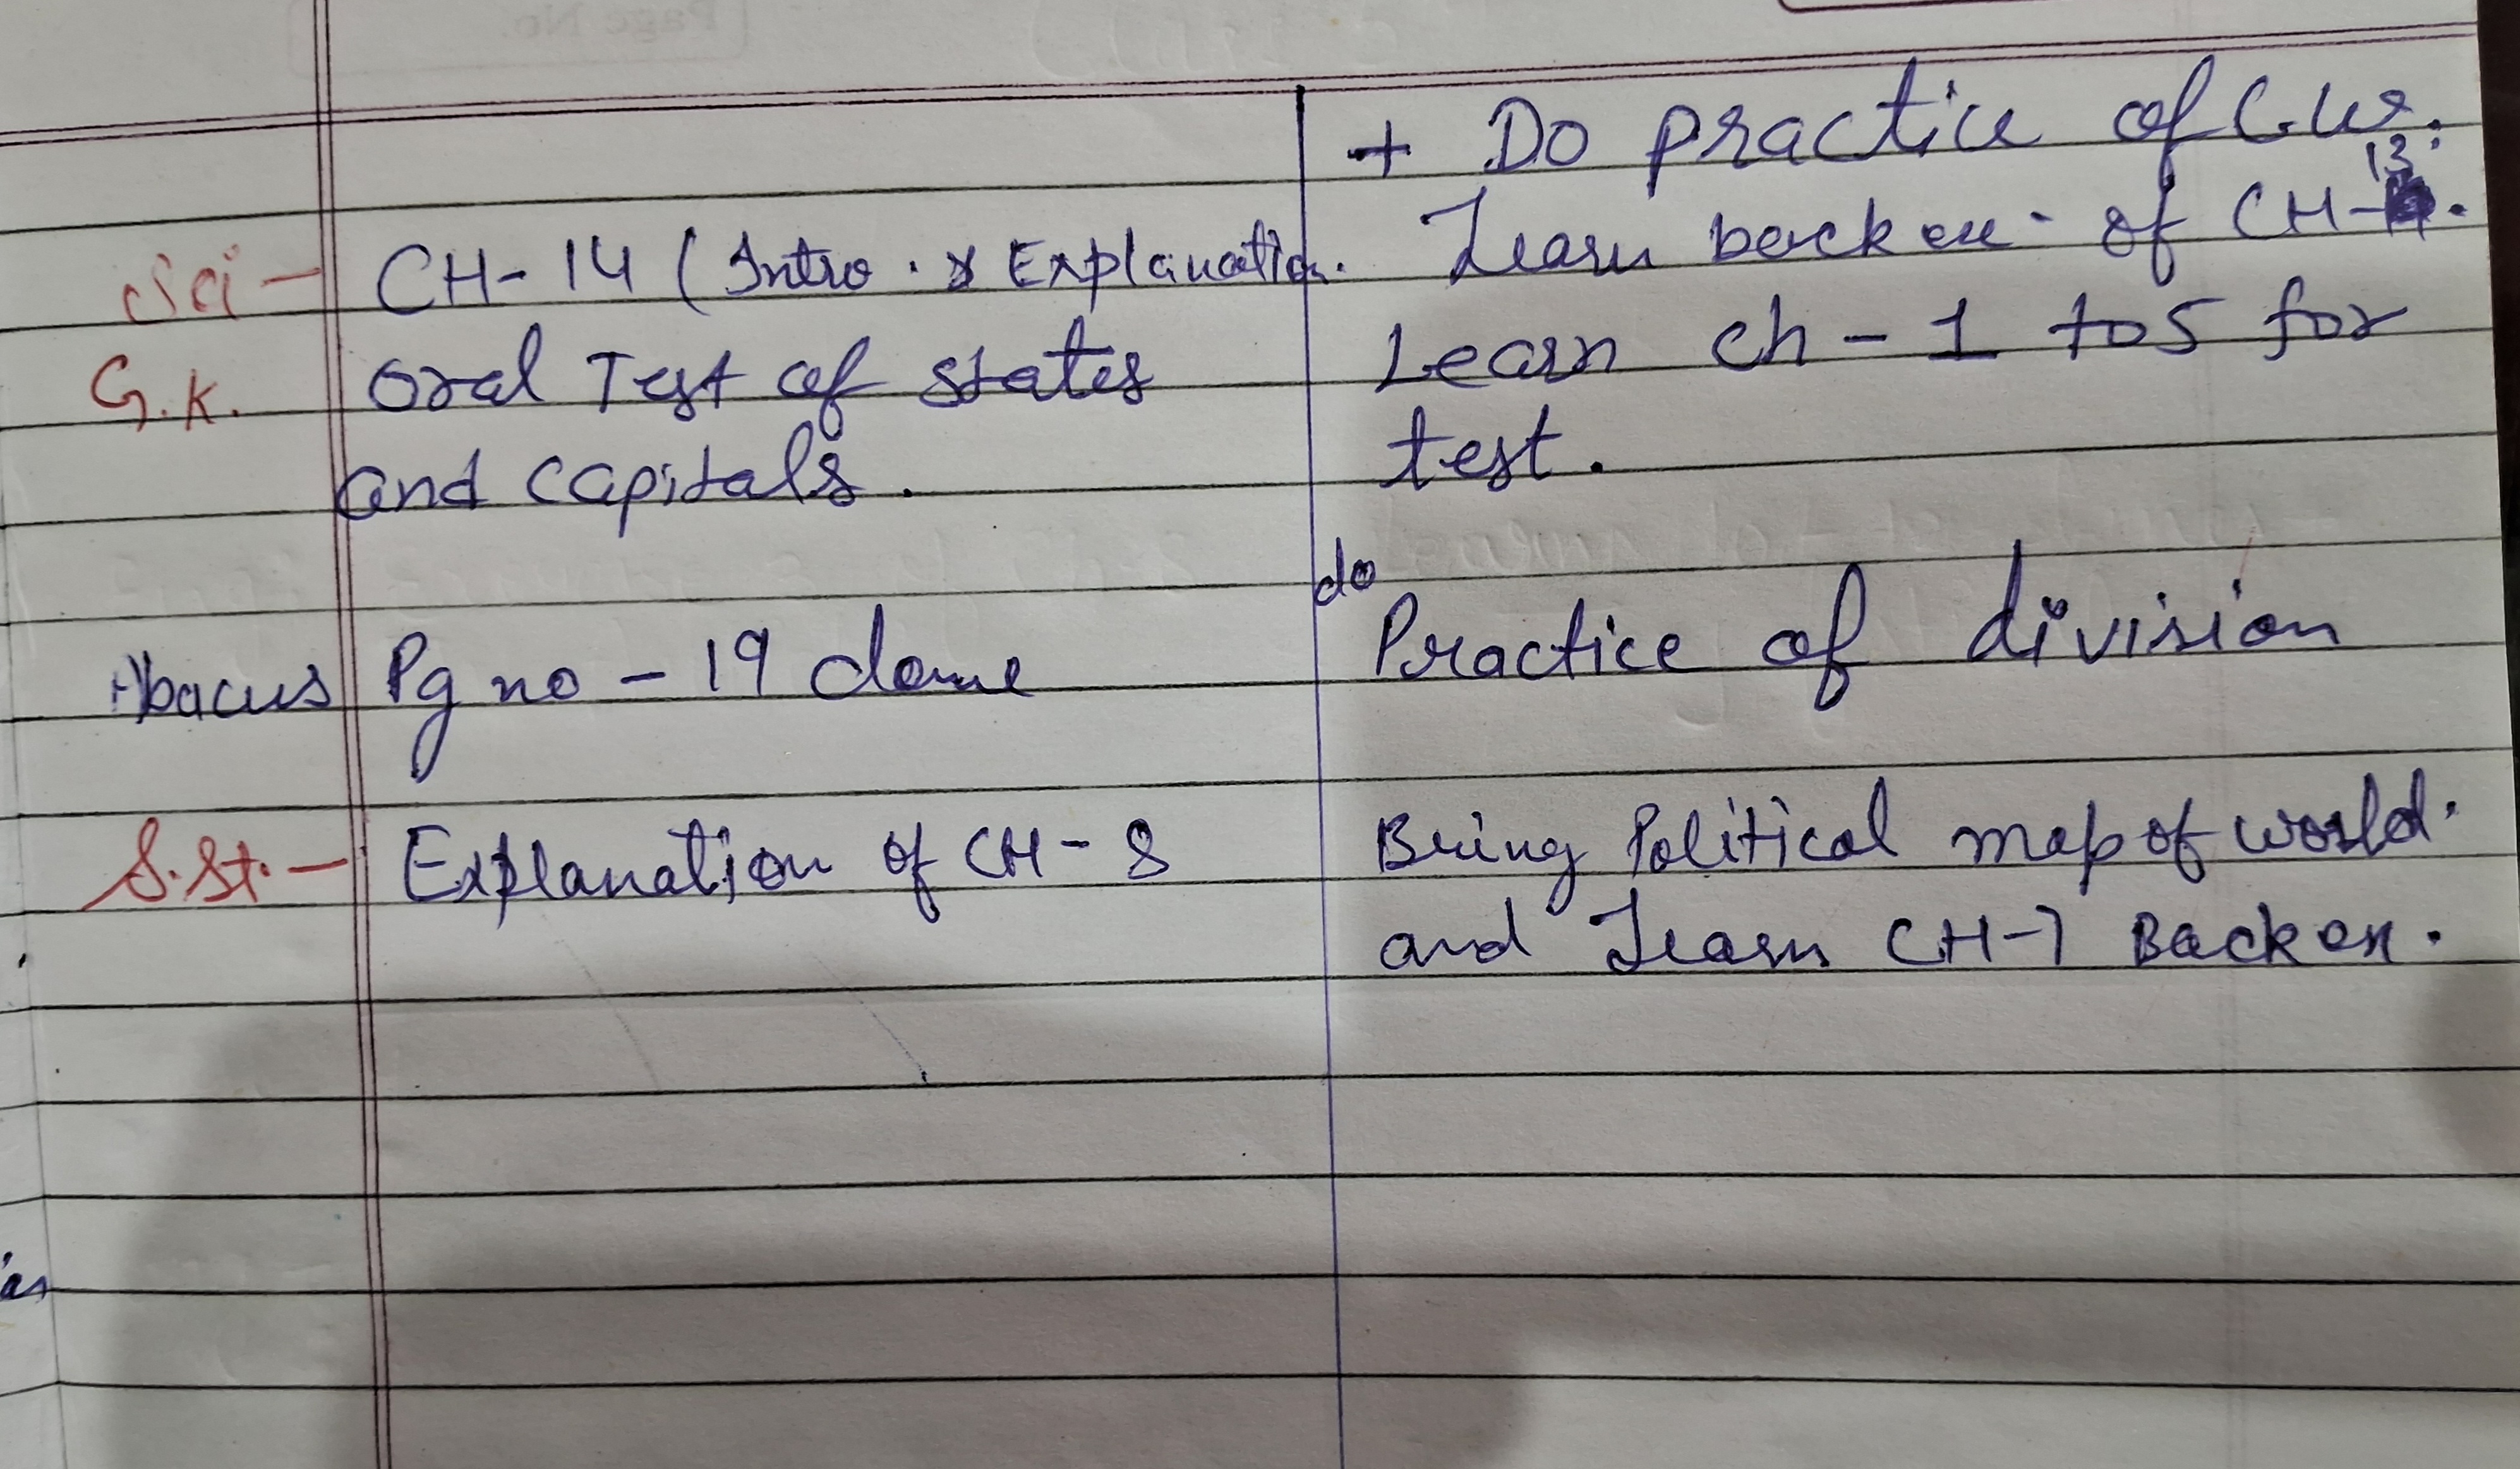 + Do practice of C.W.
Sci - CH-14 (Intro. & Explanation. Learn back ex. of CH-13.
G.K. Oral Test of states Learn ch - 1 to 5 for
and capitals. test.
do
Abacus Pg no - 19 done Practice of division
S.St. - Explanation of CH - 8 Bring Political map of world.
and Learn CH-7 Back ex.